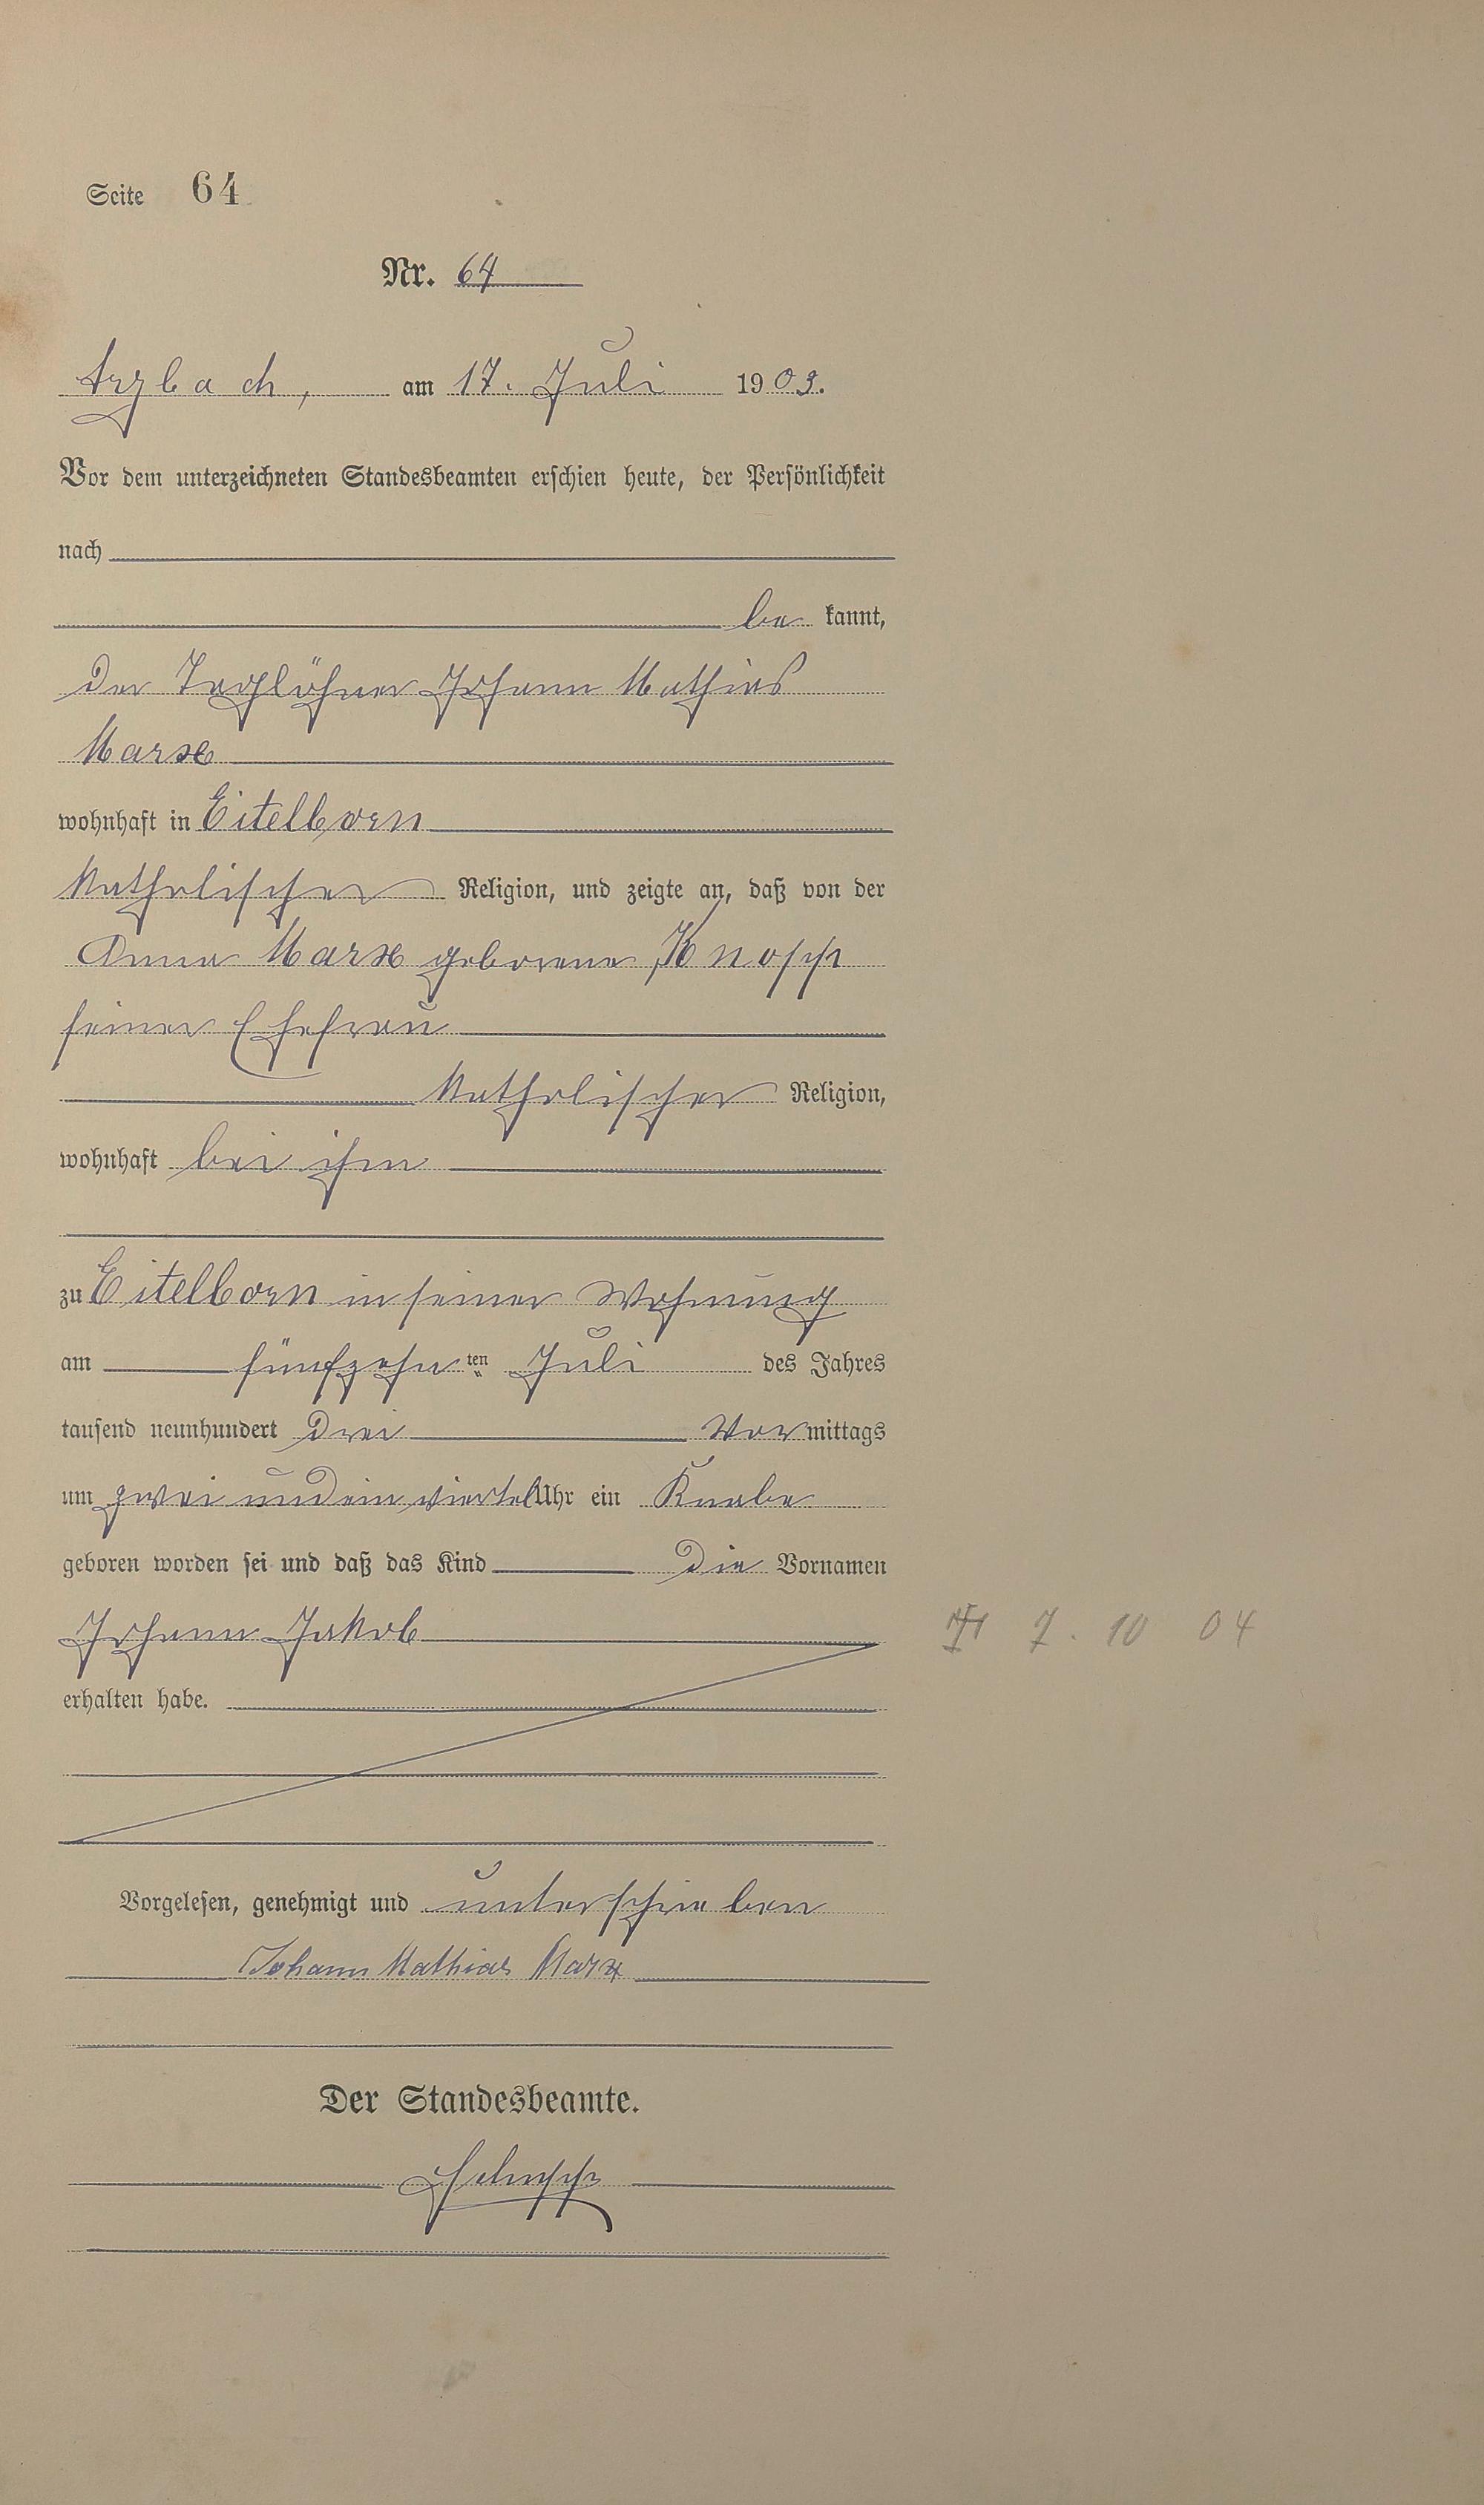 Seite 64
Nr. 64
Arzbach, am 17. Juli 1903.
Vor dem unterzeichneten Standesbeamten erschien heute, der Persönlichkeit
nach
be kannt,
der Taglöhner Johann Mathias
Marx
wohnhaft in Eitelborn
katholischer Religion, und zeigte an, daß von der
Anna Marx geborene Knopp
seiner Ehefrau
katholischer Religion,
wohnhaft bei ihm
zu Eitelborn in seiner Wohnung
am fünfzehn ten Juli des Jahres
tausend neunhundert drei Vormittags
um zwei und ein viertel Uhr ein Knabe
geboren worden sei und daß das Kind die Vornamen
Johann Jakob
7. 10 04
erhalten habe.
Vorgelesen, genehmigt und unterschrieben
Johann Mathias Marx
Der Standesbeamte.